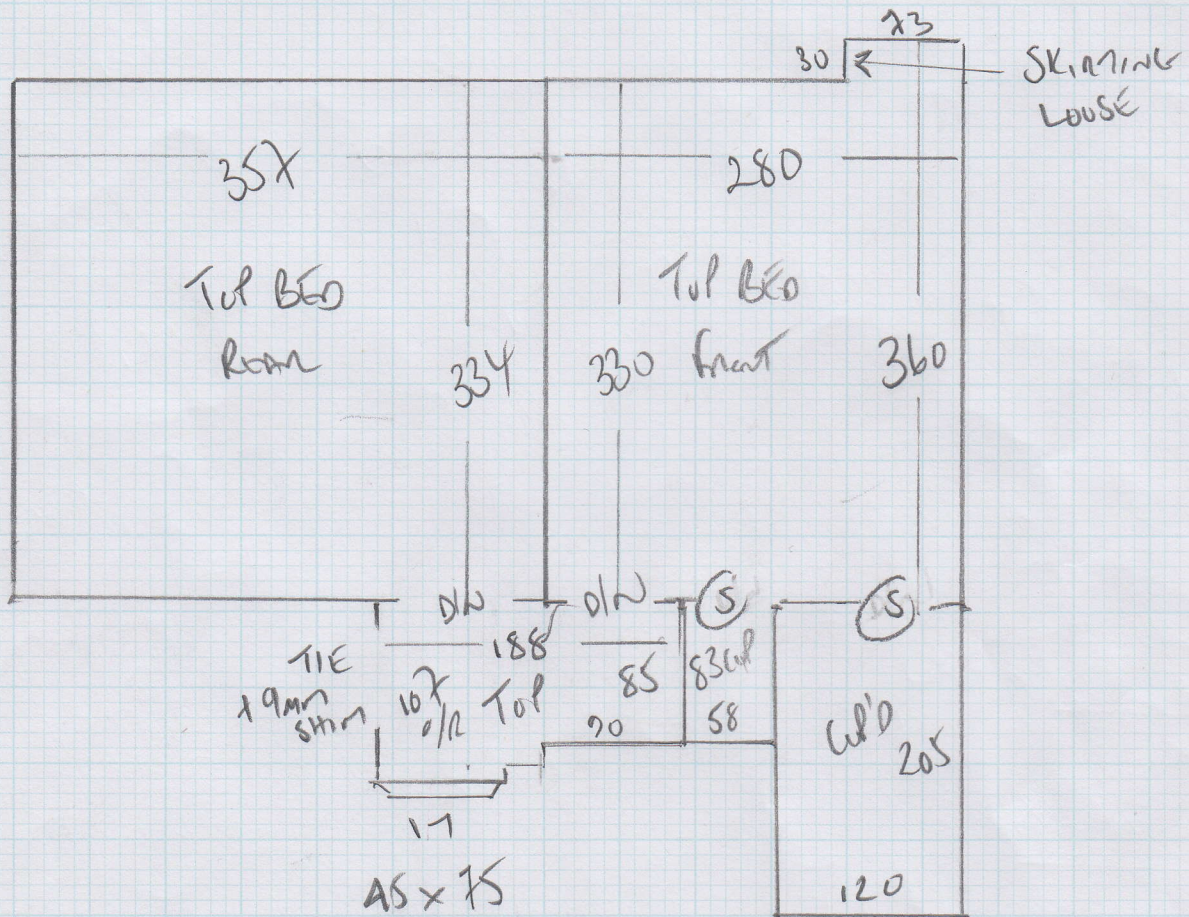 73
30
SKIRTING
LOOSE
357
280
TOP BED
REAR
TOP BED
FRONT
334
330
360
D/W
D/W
S
S
188
TIE
+9MM
SHIM
107
O/R
TOP
85
83 CUP
90
58
CUP'D
205
17
45 x 75
120